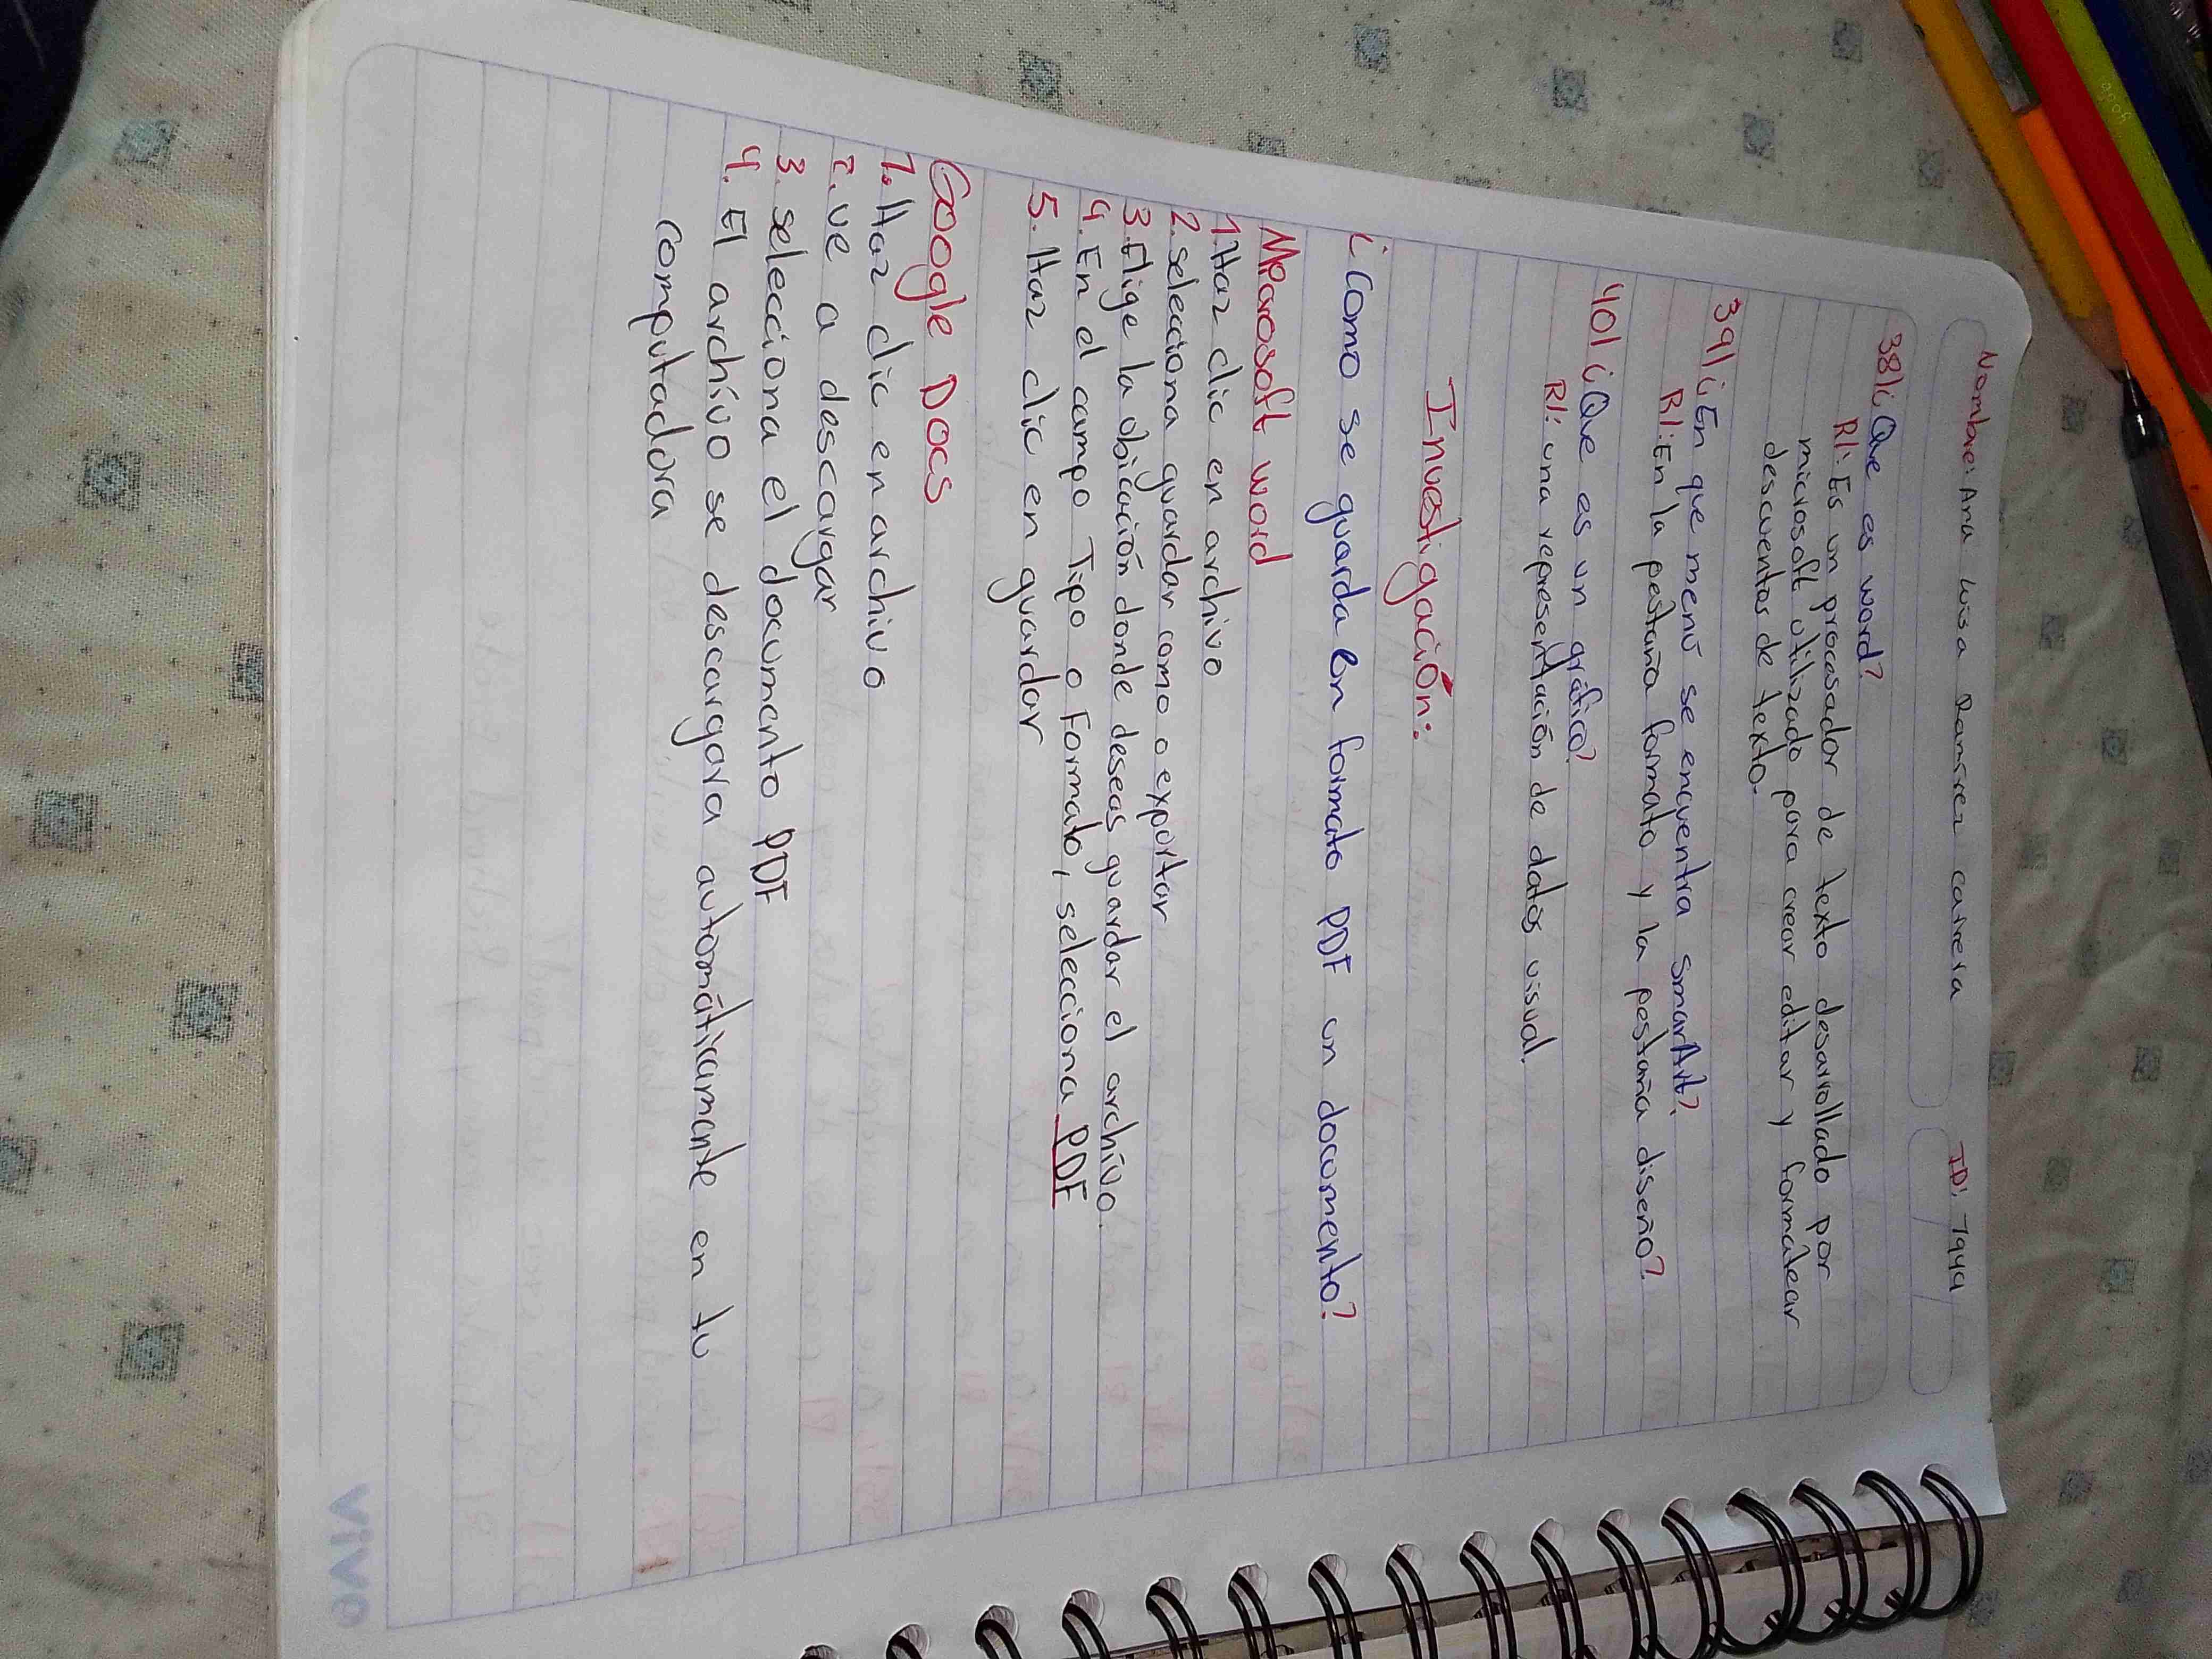 Nombre: Ana Luisa Ramírez carreta ID: 7999
38/¿Que es word?
R/: Es un procesador de texto desarrollado por
microsoft utilizado para crear editar y formatear
descuentos de texto.
39/¿En que menú se encuentra SmarArt?
R/: En la pestaña formato y la pestaña diseño?
40/¿Que es un gráfico?
R/: una representación de datos visual.
Investigación:
¿Como se guarda en formato PDF un documento?
Microsoft word
1. Haz clic en archivo
2. selecciona guardar como o exportar
3. Elige la obicación donde deseas guardar el archivo.
4. En el campo Tipo o Formato, selecciona PDF
5. Haz clic en guardar
Google Docs
1. Haz clic en archivo
2. ve a descargar
3. selecciona el documento PDF
4. El archivo se descargara automáticamente en tu
computadora
vivo